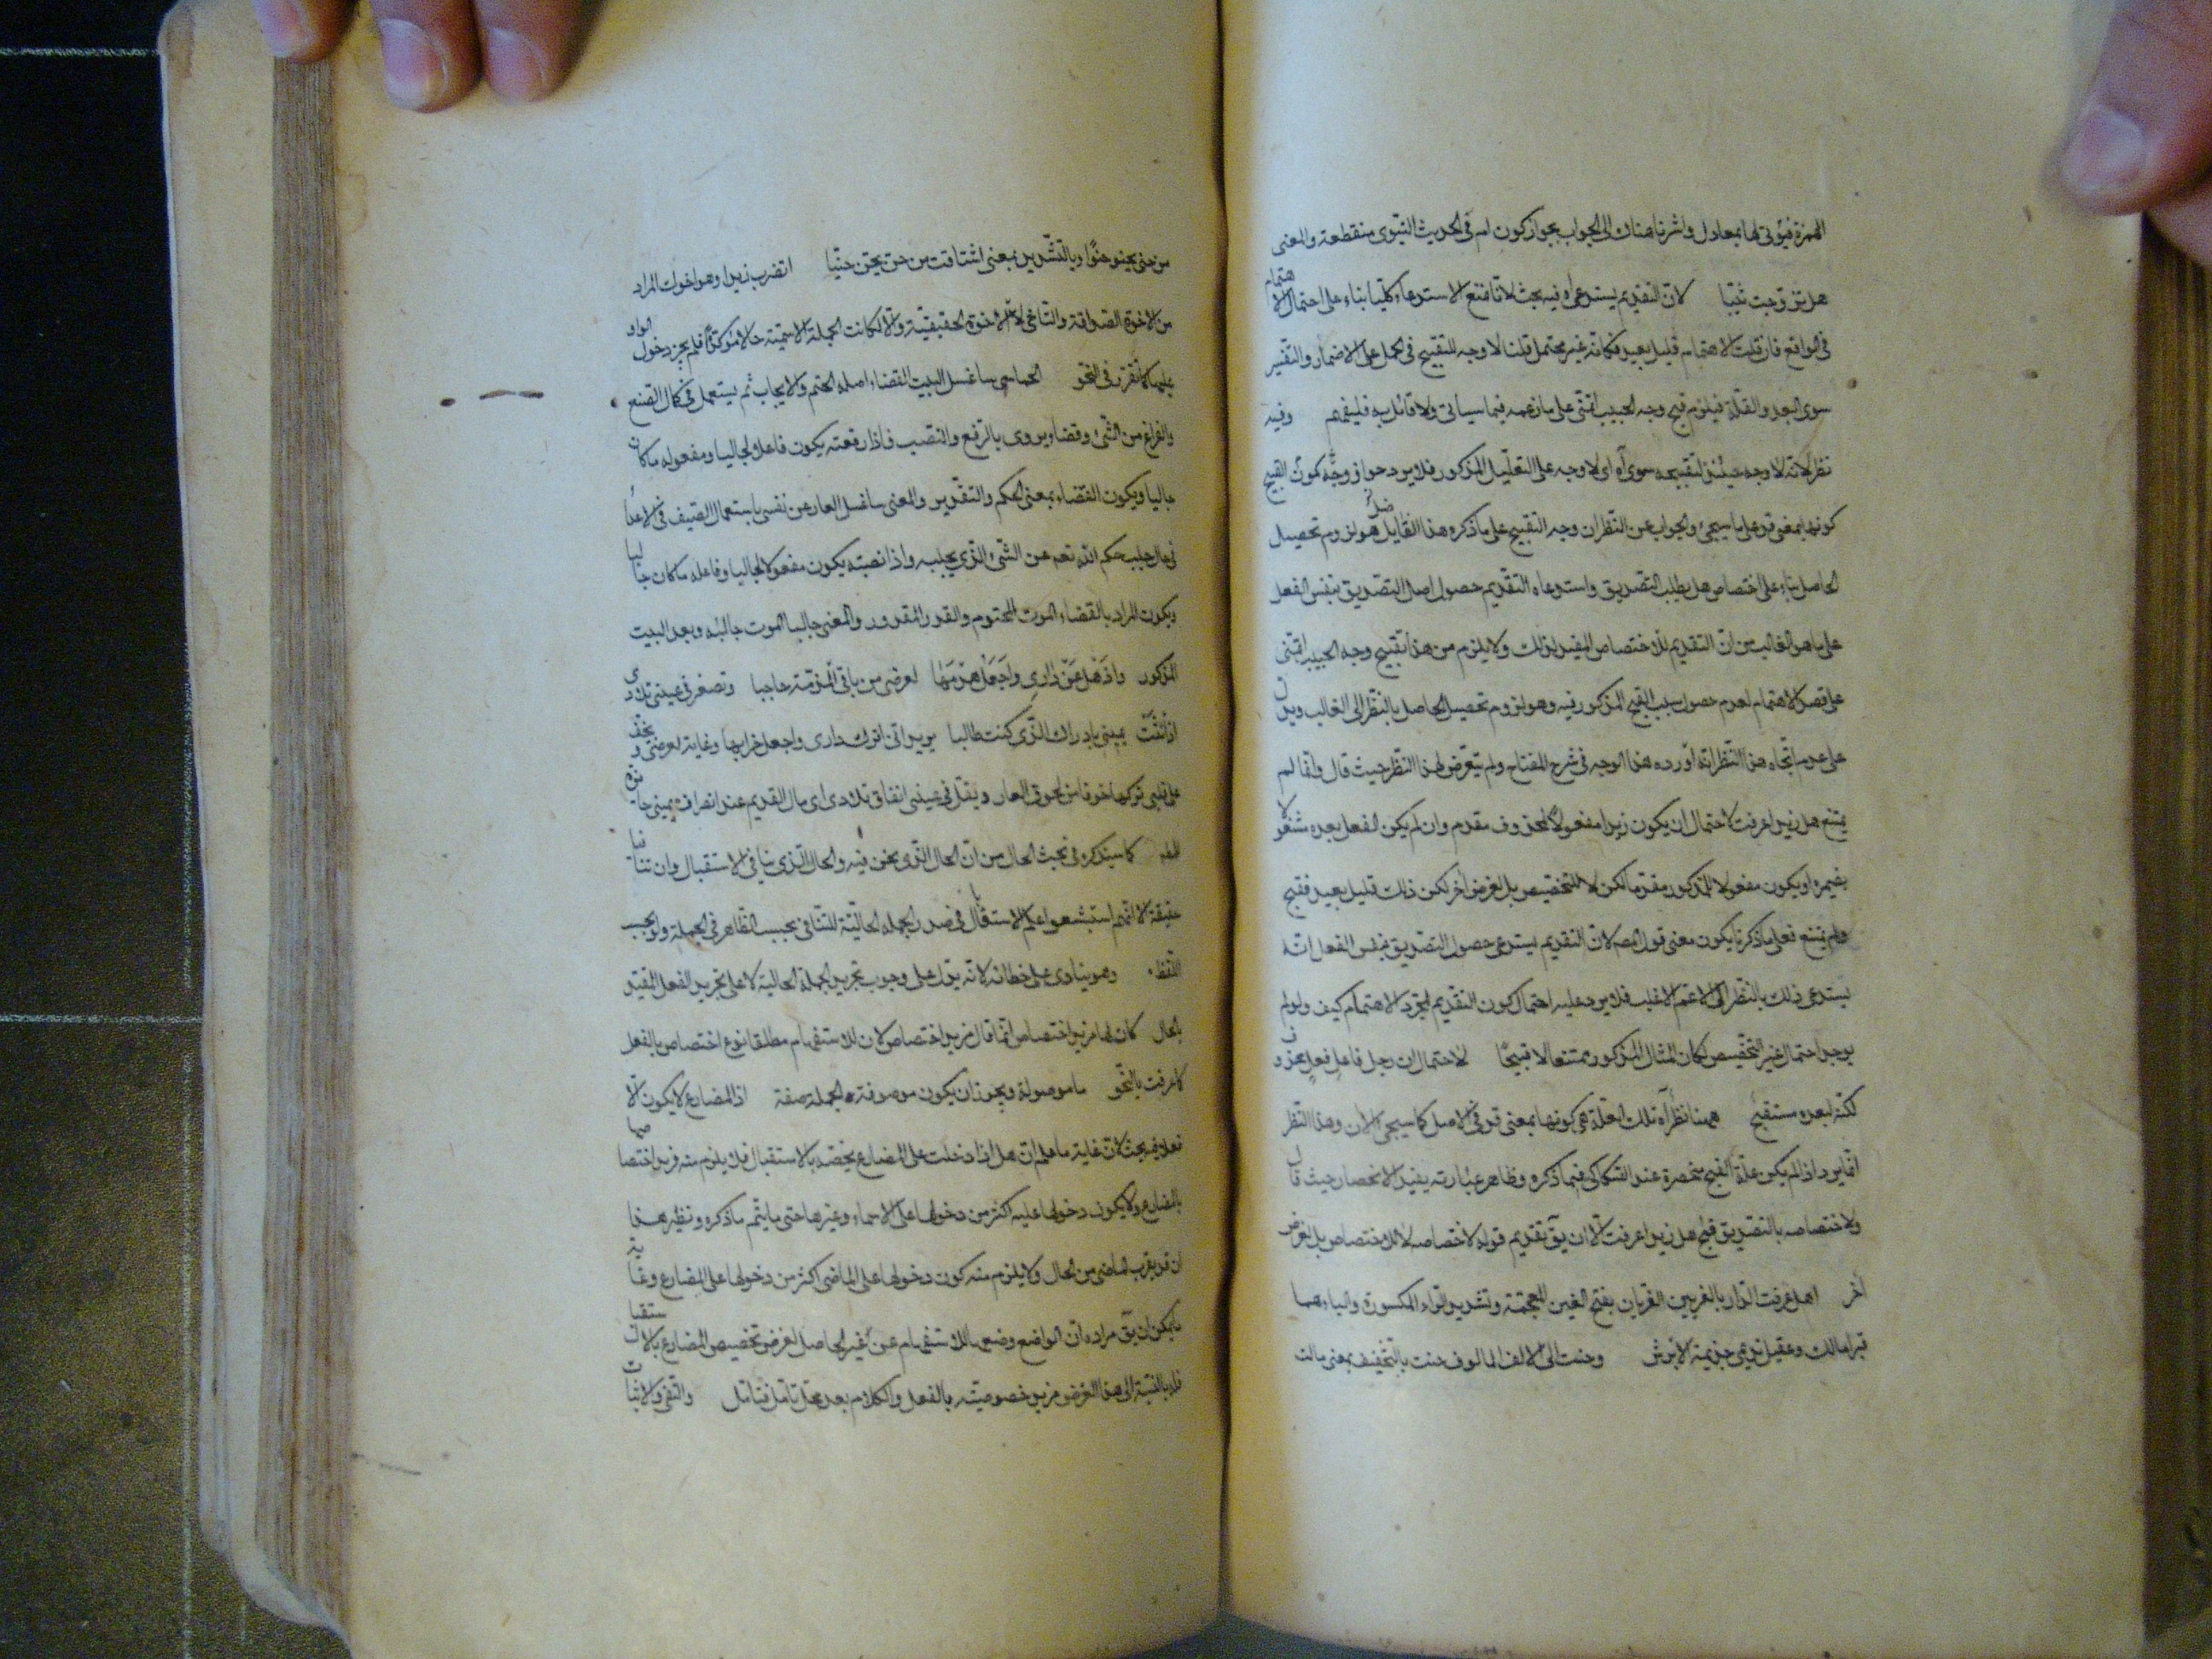 الهمزة فيؤتى لها بمعادل واشرنا هناك الى الجواب بجواز كون ام فى الحديث النبوى منقطعة والمعنى
هل تزوجت ثيبا لان التقديم يستدعى اه فيه بحث لانا نمنع الاستدعاء كليا بناء على احتمال الاهتمام
فى الواقع فان قلت الاهتمام قليل بعيد فكانه غير محتمل قلنا لا وجه للتقبيح فى الحمل على الاضمار والتقدير
سوى البعد والقلة فيلزم قبح وجه الحبيب اتمنى على ما زعمه فيما سياتى ولا قائل به فليفهم وفيه
نظر لانه لا وجه حينئذ لتقبيحه سوى اه اى لا وجه على التعليل المذكور فلا يرد جواز وجه كون القبح
كونها بمعنى قد على ما سيجئ والجواب عن النظر ان وجه التقبيح على ما ذكره هذا القايل هو لزوم تحصيل
الحاصل بناء على اختصاص هل بطلب التصديق واستدعاء التقديم حصول اصل التصديق بنفس الفعل
على ما هو الغالب من ان التقديم للاختصاص المفيد لذلك ولا يلزم من هذا تقبيح وجه الحبيب اتمنى
على قصد الاهتمام لعدم حصول سبب القبح المذكور فيه وهو لزوم تحصيل الحاصل بالنظر الى الغالب ويدل
على عدم اتجاه هذا النظر انه اورده هذا الوجه فى شرح المفتاح ولم يتعرض لهذا النظر حيث قال وانما لم
يمتنع هل زيدا عرفت لاحتمال ان يكون زيدا مفعولا لمحذوف مقدم وان لم يكن الفعل بعده مشغولا
بضميره او يكون مفعولا للمذكور مقدما لكن لا للتخصيص بل لغرض اخر لكن ذلك قليل بعيد فقبح
ولم يمتنع فعلى ما ذكرنا يكون معنى قول المصـ لان التقديم يستدعى حصول التصديق بنفس الفعل انه
يستدعى ذلك بالنظر الى الاعم الاغلب فلا يرد عليه احتمال كون التقديم لمجرد الاهتمام كيف ولو لم
يوجد احتمال غير التخصيص لكان المثال المذكور ممتنعا لا قبيحا لاحتمال ان رجل فاعل فعل محذوف
لكنه لبعده مستقبح ههنا نظر اه تلك العلة هى كونها بمعنى قد فى الاصل كما سيجى الان وهذا النظر
انما يرد اذا لم يكن علة القبح منحصرة عند السكاكى فيما ذكره وظاهر عبارته يفيد الانحصار حيث قال
ولاختصاصه بالتصديق قبح هل زيدا عرفت الا ان يق تقديم قوله لاختصاصه لا للاختصاص بل لغرض
آخر اهل عرفت الدار بالغريين الغريان بفتح الغين المعجمة وتشديد الراء المكسورة والياء هما
قبرا مالك وعقيل نديمى جذيمة الابرش وحنت الى الالف المالوف حنت بالتخفيف بمعنى مالت
من حنى يحنو حنوا وبالتشديد بمعنى اشتاقت من حن يحن حنينا اتضرب زيدا وهو اخوك المراد
من الاخوة الصداقة والتاخى لا الاخوة الحقيقية والا لكانت الجملة الاسمية حالا مؤكدة فلم يجز دخول الواو
عليها كما تقرر فى النحو الحماسى ساغسل البيت القضاء اصله الحتم والايجاب ثم يستعمل فى كمال الصنع
والفراغ من الشئ وقضاء يروى بالرفع والنصب فاذا رفعته يكون فاعلا لجالبا ومفعوله ما كان
جالبا ويكون القضاء بمعنى الحكم والتقدير والمعنى ساغسل العار عن نفسى باستعمال السيف فى الاعداء
فى حال جلب حكم الله تعـ عن الشئ الذى يجلبه واذا نصبته يكون مفعولا لجالبا وفاعله ما كان جالبا
ويكون المراد بالقضاء الموت المحتوم والقدر المقدور والمعنى جالبا الموت جالبه وبعد البيت
المذكور واذهل عن دارى واجعل هدمها لعرضى من باقى المذمة حاجبا وتصغر فى عينى تلادى
اذا انثنت يمينى بادراك الذى كنت طالبا يريد انى اترك دارى واجعل خرابها وقاية لعرضى ويخف
على قلبى تركها خوفا من لحوق العار ويقل فى عينى انفاق تلادى اى مال القديم عند انصراف يمينى
كما سنذكره فى بحث الحال من ان الحال الذى نحن فيه والحال الذى ينافى الاستقبال وان تنافيا
حقيقة الا انهم استبشعوا علم الاستقبال فى صدر الجملة الحالية للتنافى بحسب الظاهر فى الجملة ولو بحسب
اللفظ وهو ينادى على خطائه لانه يدل على وجوب تجريد الجملة الحالية لا على تجريد الفعل المقيد
بالحال كان لها مزيد اختصاص انما قال مزيد اختصاص لان للاستفهام مطلقا نوع اختصاص بالفعل
كما عرفت بالنحو ما موصولة ويجوز ان يكون موصوفة والجملة صفة اذ المضارع لا يكون الا
فعلا فيه بحث لان غاية ما علم ان هل اذا دخلت على المضارع يخصه بالاستقبال فلا يلزم منه مزيد اختصاصها
بالمضارع ولا يكون دخولها عليه اكثر من دخولها على الاسماء وغيرها حتى ما يتم ما ذكره ونظير هذا
ان قد يقرب الماضى من الحال ولا يلزم منه كون دخولها على الماضى اكثر من دخولها على المضارع وغاية
ما يمكن ان يق مراده ان الواضع وضع هل للاستفهام عن غير الحاصل لغرض تخصيص المضارع بالاستقبال
فله بالنسبة الى هذا الغرض مزيد خصوصيته بالفعل والكلام بعد محل تامل فتامل والنفى والاثبات